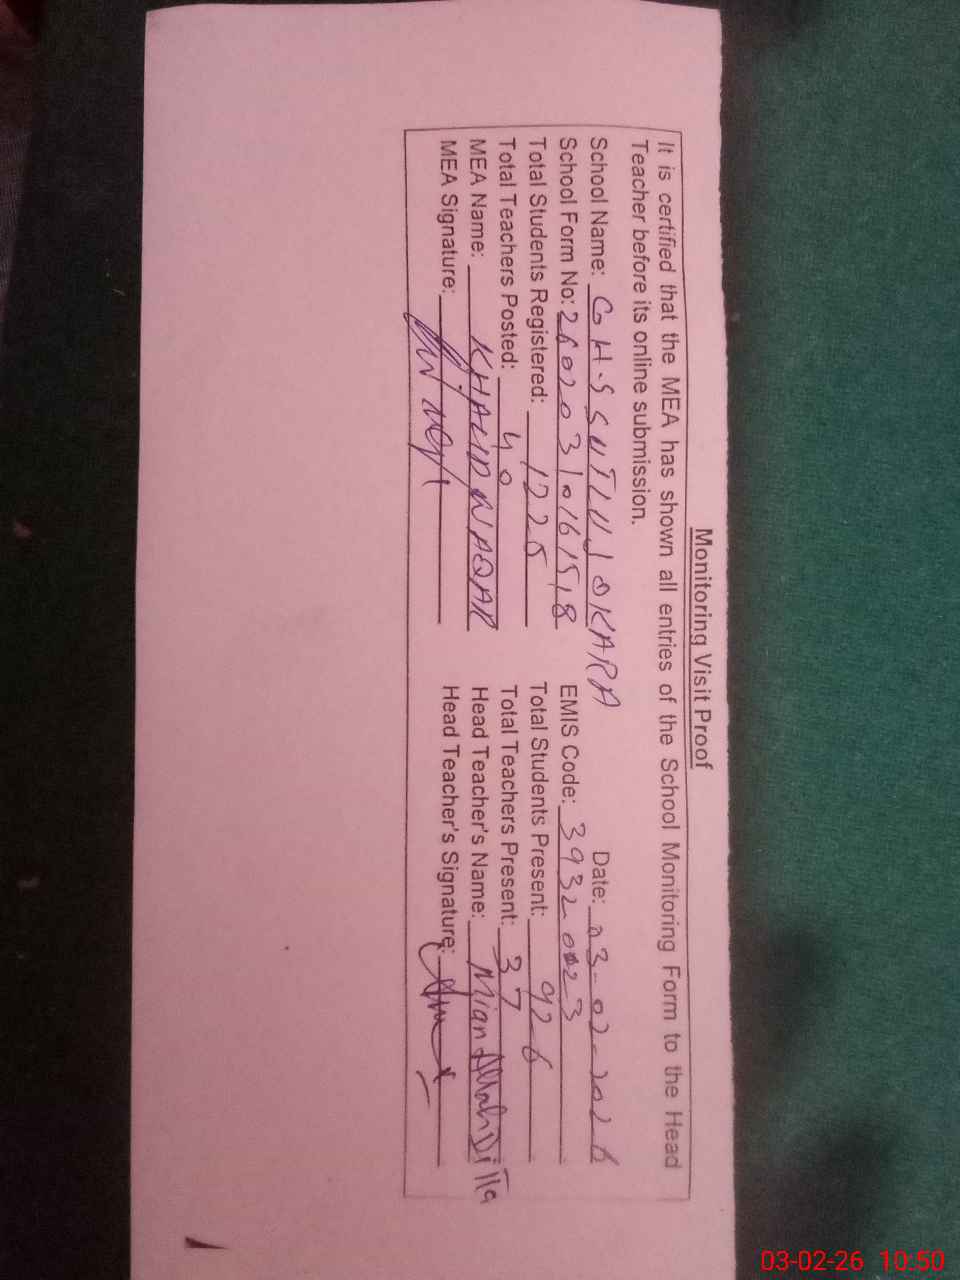 Monitoring Visit Proof
It is certified that the MEA has shown all entries of the School Monitoring Form to the Head
Teacher before its online submission.
School Name: G.H.S SUTLUJ OKARA Date: 03-02-2026
School Form No: EMIS Code: 39320023
Total Students Registered: 1225 Total Students Present: 926
Total Teachers Posted: 40 Total Teachers Present: 37
MEA Name: KHALID WAQAR Head Teacher's Name: Mian Allah Ditta
MEA Signature: Head Teacher's Signature:
03-02-26 10:50